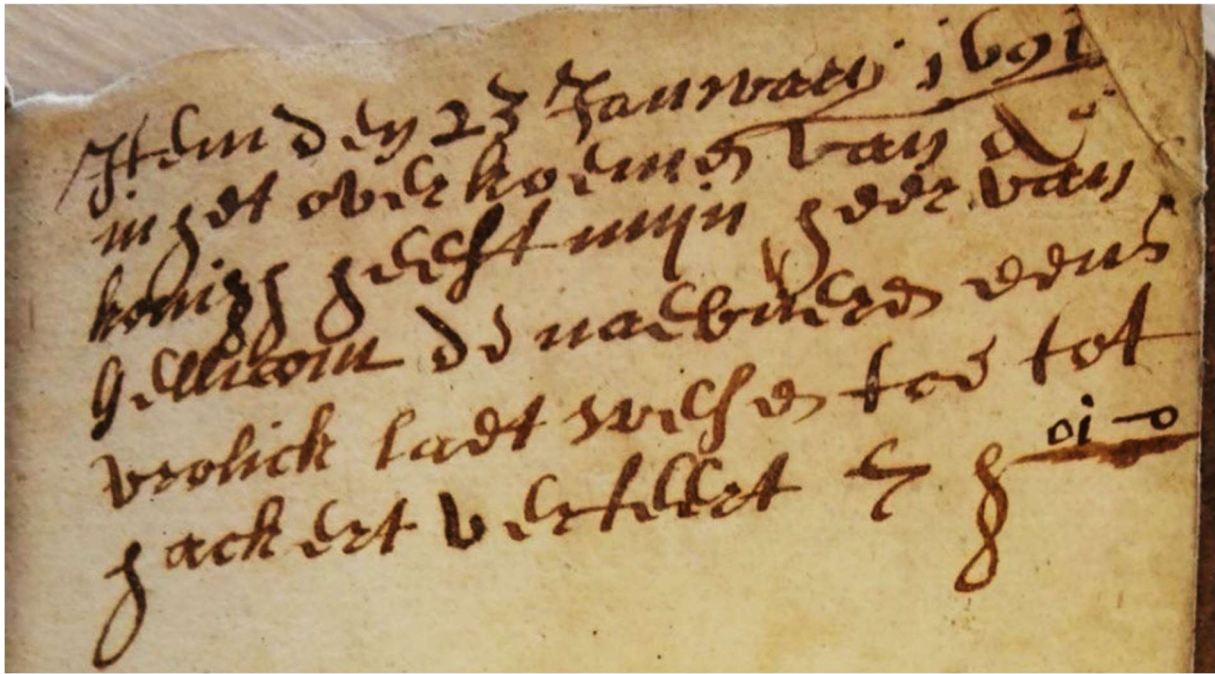 Item den 23 Januarij 1691
in het overkoemen van de
konigh heeft mijn heer van
Gellicom de naebueren eens
vrolick laet wesen toe tot
hackert verteert 7 h
01 — 0